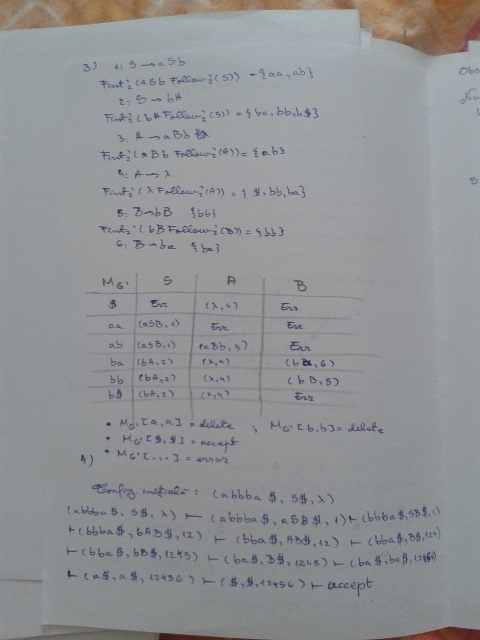 3) 1: S → aSb
First'₂(aSb Follow'₂(S)) = {aa, ab}
2: S → bA
First'₂(bA Follow'₂(S)) = {ba, bb, b$}
3. A → aBb
First'₂(aBb Follow'₂(A)) = {ab}
4: A → λ
First'₂(λ Follow'₂(A)) = {$, bb, ba}
5: B → bB {bb}
First'₂(bB Follow'₂(B)) = {bb}
6: B → ba {ba}
M_G' S A B
$ Err (λ,4) Err
aa (aSB,1) Err Err
ab (aSB,1) (aBb,3) Err
ba (bA,2) (λ,4) (ba,6)
bb (bA,2) (λ,4) (bB,5)
b$ (bA,2) (λ,4) Err
• M_G'[a,a] = delete ; M_G'[b,b] = delete
• M_G'[$,$] = accept
• M_G'[...] = error
4)
Config initiala: (abbba$, S$, λ)
(abbba$, S$, λ) ⊢ (abbba$, aSB$, 1) ⊢ (bbba$, SB$, 1)
⊢ (bbba$, bAB$, 12) ⊢ (bba$, AB$, 12) ⊢ (bba$, B$, 124)
⊢ (bba$, bB$, 1245) ⊢ (ba$, B$, 1245) ⊢ (ba$, ba$, 12456)
⊢ (a$, a$, 12456) ⊢ ($, $, 12456) ⊢ accept
Obs